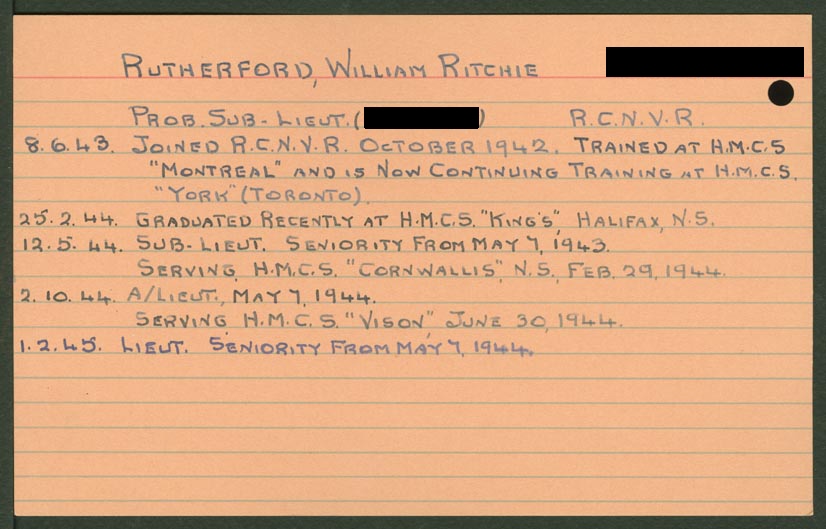 RUTHERFORD, WILLIAM RITCHIE
PROB. SUB-LIEUT. ( ) R.C.N.V.R.
8.6.43. JOINED R.C.N.V.R. OCTOBER 1942. TRAINED AT H.M.C.S
"MONTREAL" AND IS NOW CONTINUING TRAINING AT H.M.C.S.
"YORK" (TORONTO).
25.2.44. GRADUATED RECENTLY AT H.M.C.S. "KING'S", HALIFAX, N.S.
12.5.44. SUB-LIEUT. SENIORITY FROM MAY 7, 1943.
SERVING, H.M.C.S. "CORNWALLIS", N.S., FEB. 29, 1944.
2.10.44. A/LIEUT., MAY 7, 1944.
SERVING, H.M.C.S. "VISON", JUNE 30, 1944.
1.2.45. LIEUT. SENIORITY FROM MAY 7, 1944.